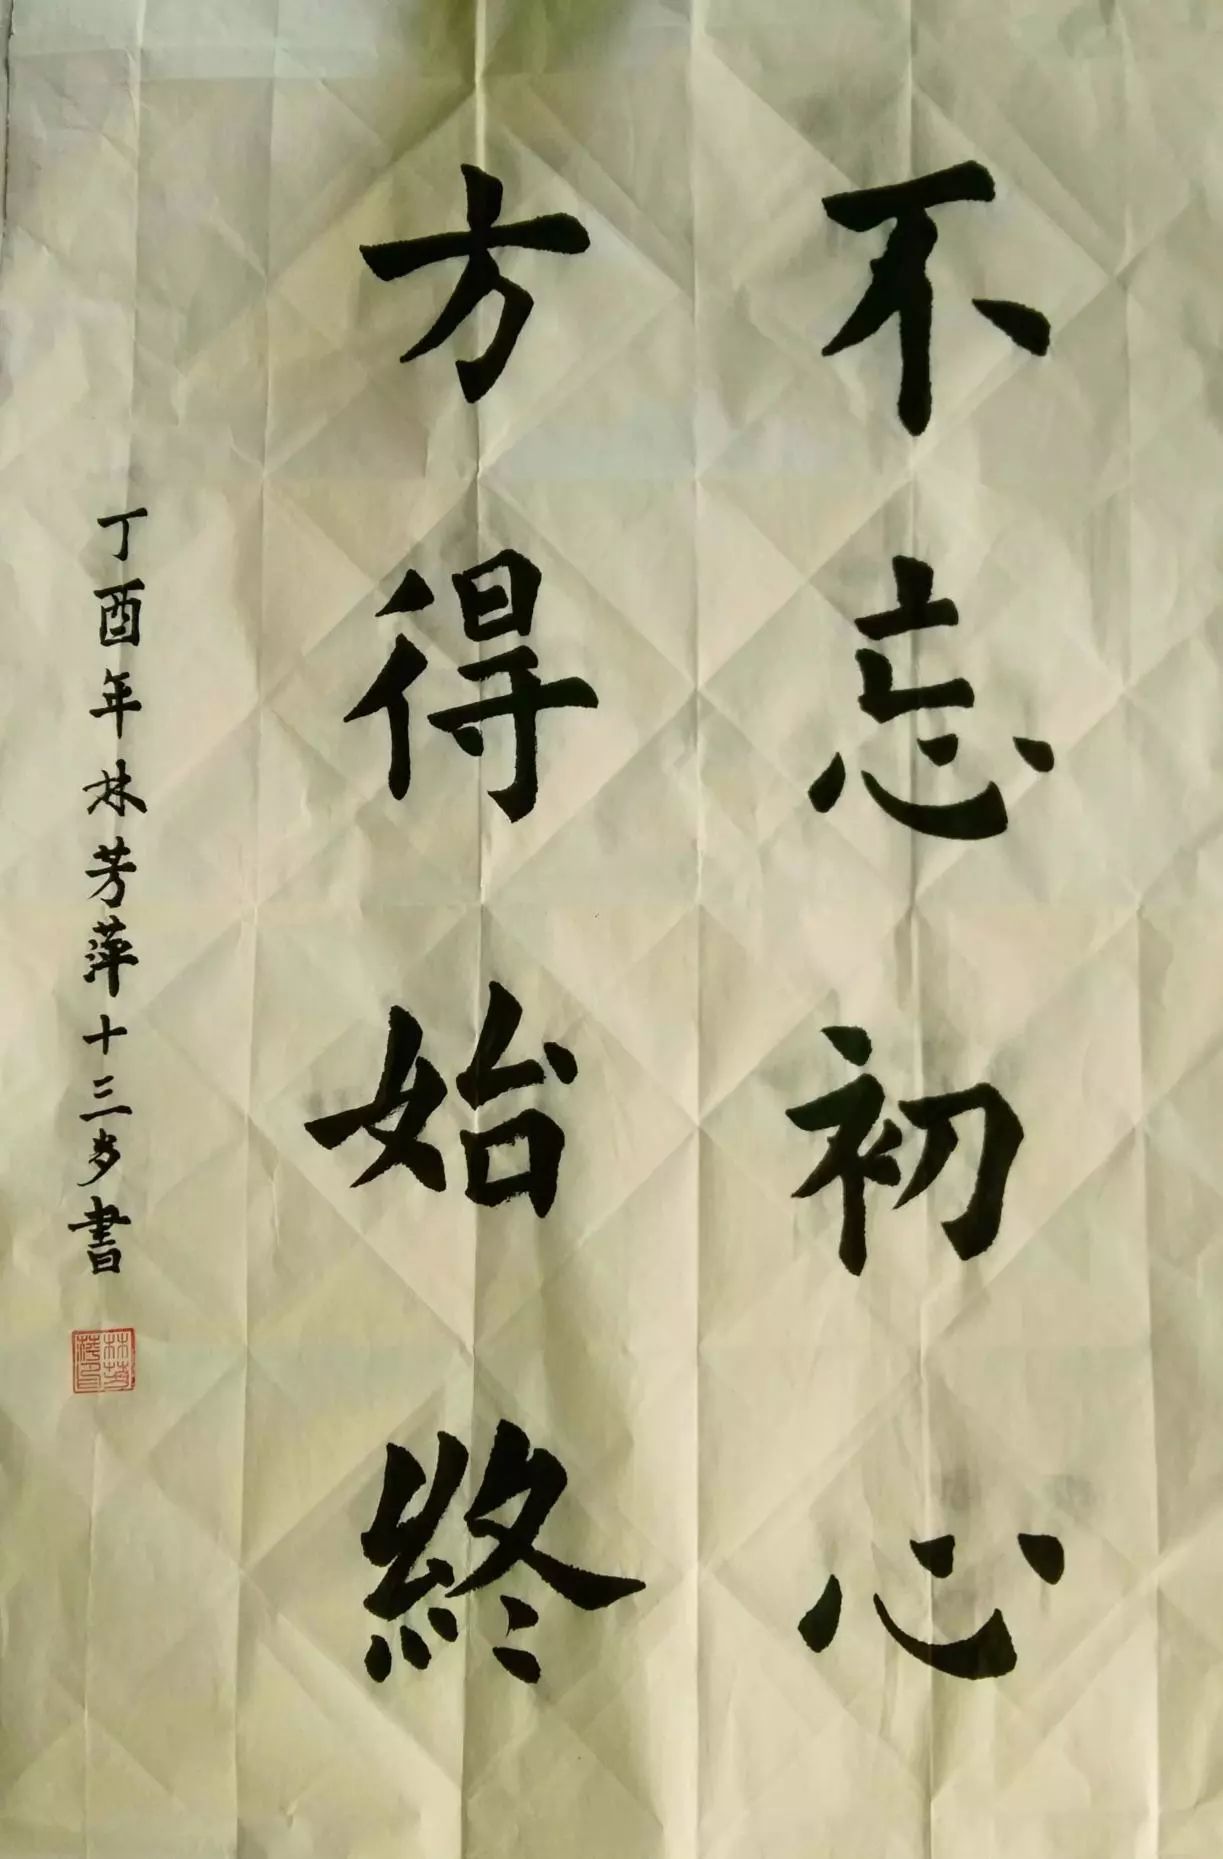 不忘初心
方得始終
丁酉年林芳萍十三岁書